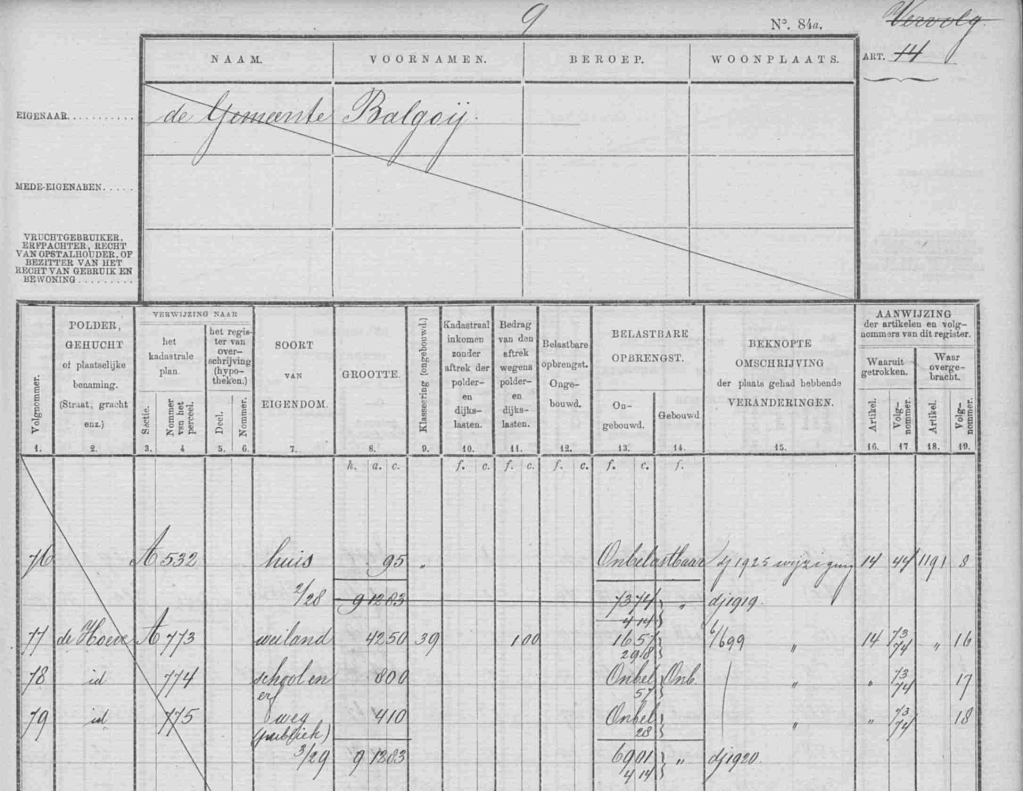 9
Nº. 84a.
Vervolg
ART. 14
NAAM. VOORNAMEN. BEROEP. WOONPLAATS.
EIGENAAR.......... de Gemeente Balgoij.
MEDE-EIGENAREN.....
VRUCHTGEBRUIKER,
ERFPACHTER, RECHT
VAN OPSTALHOUDER, OF
BEZITTER VAN HET
RECHT VAN GEBRUIK EN
BEWONING.........
Volgnommer.
POLDER,
GEHUCHT
of plaatselijke
benaming.
(Straat, gracht
enz.)
VERWIJZING NAAR
het
kadastrale
plan.
Sectie.
Nommer
van het
perceel.
het regis-
ter van
over-
schrijving
(hypo-
theken.)
Deel.
Nommer.
SOORT
VAN
EIGENDOM.
GROOTTE.
Klasseering (ongebouwd.)
Kadastraal
inkomen
zonder
aftrek der
polder-
en
dijks-
lasten.
Bedrag
van den
aftrek
wegens
polder-
en
dijks-
lasten.
Belastbare
opbrengst.
Onge-
bouwd.
BELASTBARE
OPBRENGST.
On-
gebouwd.
Gebouwd
BEKNOPTE
OMSCHRIJVING
der plaats gehad hebbende
VERANDERINGEN.
AANWIJZING
der artikelen en volg-
nommers van dit register.
Waaruit
getrokken.
Artikel.
Volg-
nommer.
Waar
overge-
bracht.
Artikel.
Volg-
nommer.
1. 2. 3. 4 5. 6. 7. 8. 9. 10. 11. 12. 13. 14. 15. 16. 17 18. 19.
h. a. c. f. c. f. c. f. c. f. c. f.
76 A 532 huis 95 " Onbelastbaar dj 1925 wijziging 14 44 1191 8
2/28 9 1283 7374 " dj 1919.
4 14
77 de Hoeve A 773 weiland 4250 39 1 00 16 57 6/699 " 14 73/74 " 16
29.8
78 id 774 school en 800 Onbel Onb. " " 73/74 17
erf 57
79 id 775 weg 410 Onbel " " 73/74 18
(publiek) 28
3/29 9 1283 6901 " dj 1920.
4 14